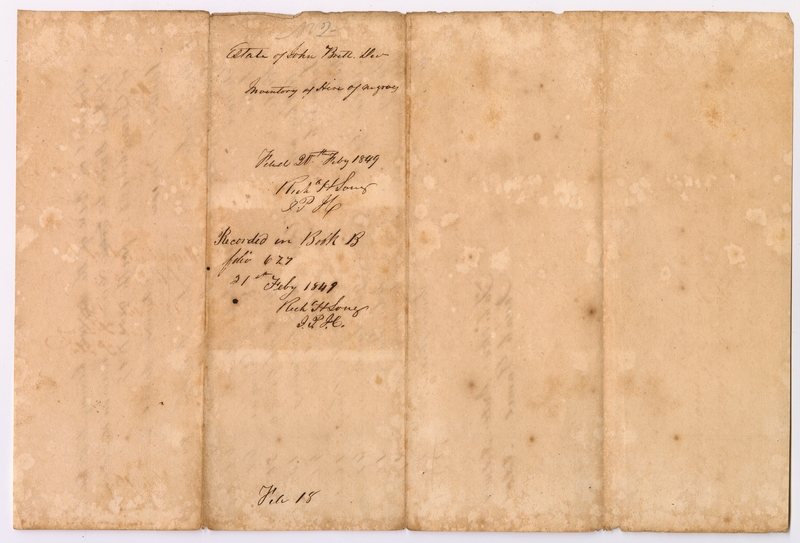 No 2
Estate of John Bell. Dec
Inventory of Hire of negroes
Filed 20th Feby 1849
Rich H Long
J P J C
Recorded in Book B
folio 627
21st Feby 1849
Rich H Long
J. P. J. C.
File 18